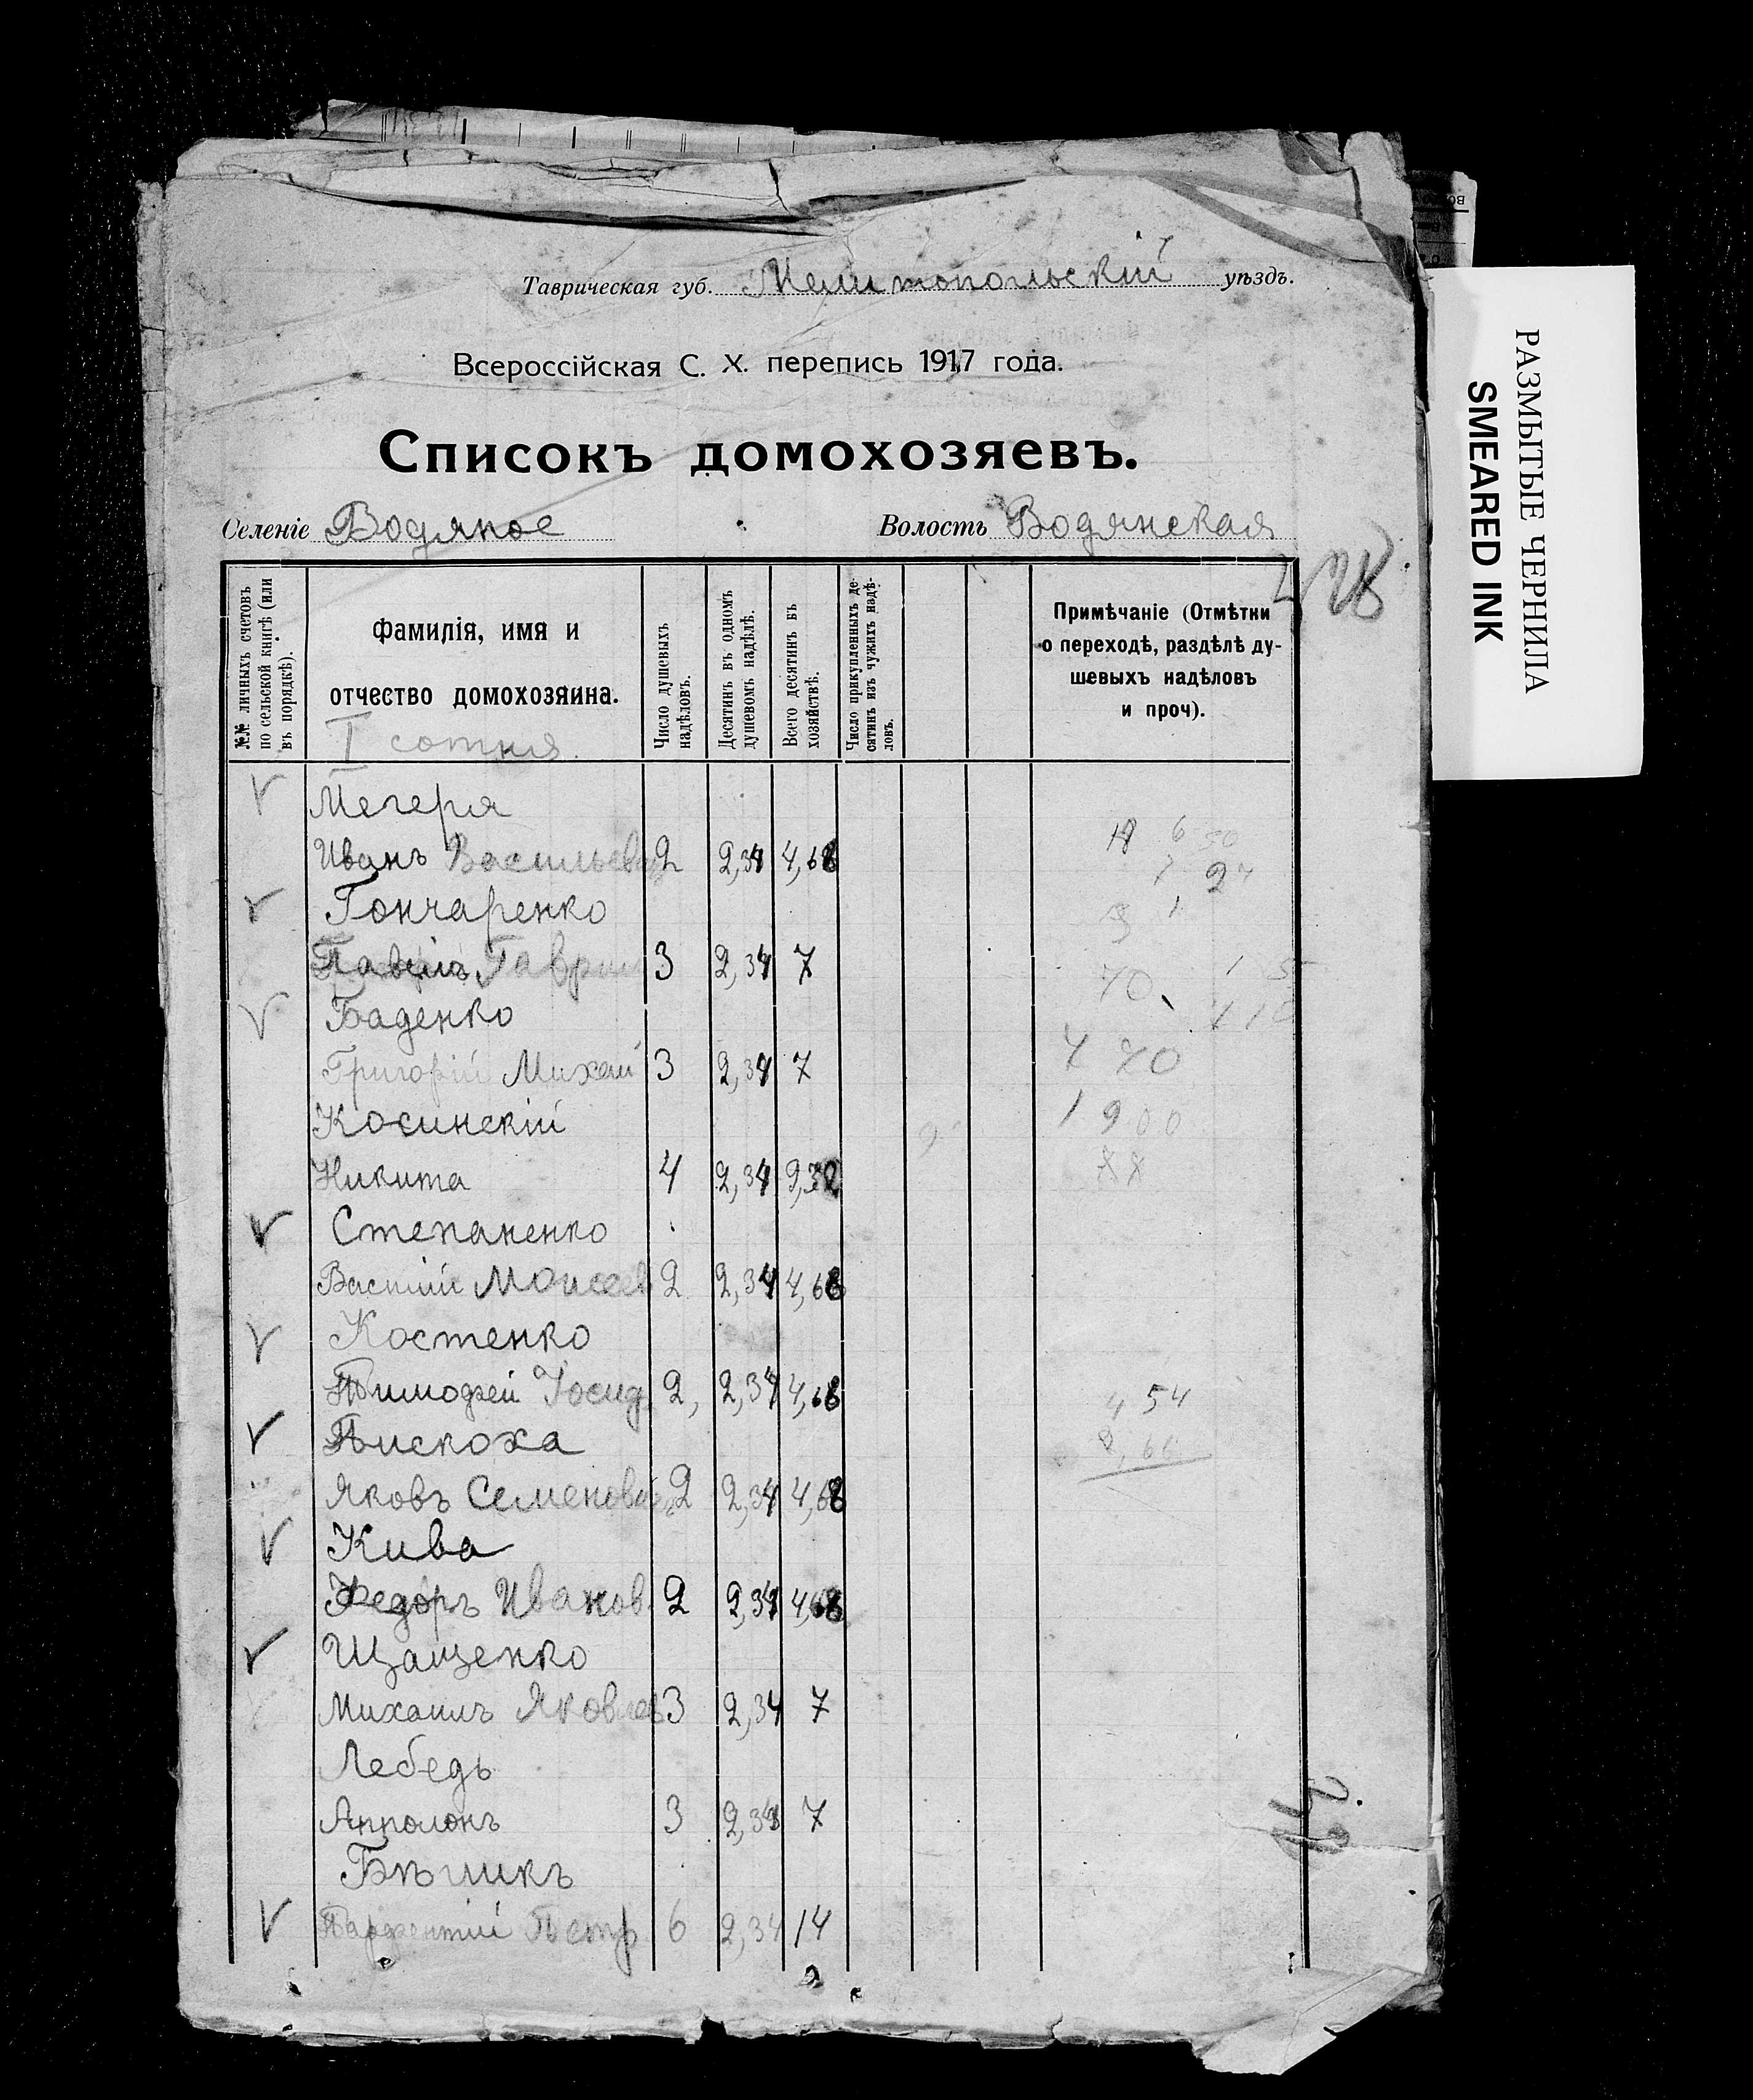 Таврическая губ. Мелитопольскій уѣздъ.
Всероссійская С. Х. перепись 1917 года.
Списокъ домохозяевъ.
Селеніе Водяное Волость Водянская
№№ личныхъ счетовъ по сельской книгѣ (или въ порядкѣ).
Фамилія, имя и
отчество домохозяина.
I сотня.
Число душевыхъ надѣловъ.
Десятинъ въ одномъ душевомъ надѣлѣ.
Всего десятинъ въ хозяйствѣ.
Число прикупленныхъ десятинъ изъ чужихъ надѣловъ.
Примѣчаніе (Отмѣтки
о переходѣ, раздѣлѣ ду-
шевыхъ надѣловъ
и проч).
Мегеря
Иванъ Васильевъ 2 2,34 4,68
Гончаренко
Павелъ Гаврил 3 2,34 7
Баденко
Григорій Михаи 3 2,34 7
Косинскій
Никита 4 2,34 9,32
Степаненко
Василій Моисеев 2 2,34 4,68
Костенко
Тимофей Іосид 2, 2,34 4,68
Пискоха
Яковъ Семенови 2 2,34 4,68
Кива
Федоръ Иванов 2 2,34 4,68
Щащенко
Михаилъ Яковлев 3 2,34 7
Лебедь
Апполонъ 3 2,34 7
Бѣликъ
Парфентій Петр 6 2,34 14
70
470
1900
4 54
РАЗМЫТЫЕ ЧЕРНИЛА
SMEARED INK